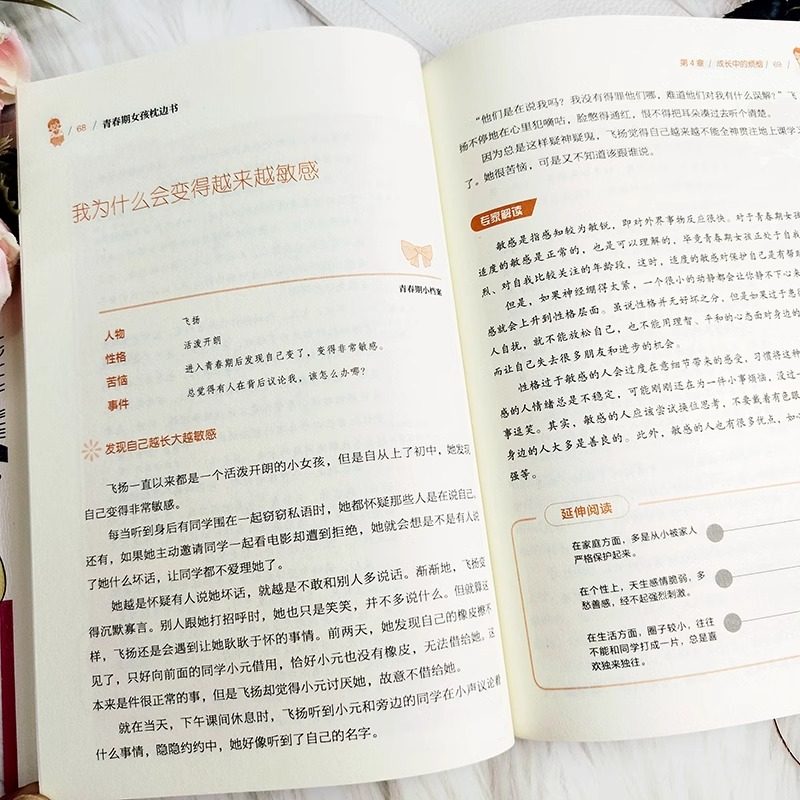 68 / 青春期女孩枕边书
我为什么会变得越来越敏感
青春期小档案
人物 飞扬
性格 活泼开朗
苦恼 进入青春期后发现自己变了，变得非常敏感。
事件 总觉得有人在背后议论我，该怎么办哪？
发现自己越长大越敏感
飞扬一直以来都是一个活泼开朗的小女孩，但是自从上了初中，她发现
自己变得非常敏感。
每当听到身后有同学围在一起窃窃私语时，她都怀疑那些人是在说自己。
还有，如果她主动邀请同学一起看电影却遭到拒绝，她就会想是不是有人说
了她什么坏话，让同学都不爱理她了。
她越是怀疑有人说她坏话，就越是不敢和别人多说话。渐渐地，飞扬变
得沉默寡言。别人跟她打招呼时，她也只是笑笑，并不多说什么。但就算这
样，飞扬还是会遇到让她耿耿于怀的事情。前两天，她发现自己的橡皮擦不
见了，只好向前面的同学小元借用，恰好小元也没有橡皮，无法借给她。这
本来是件很正常的事，但是飞扬却觉得小元讨厌她，故意不借给她。
就在当天，下午课间休息时，飞扬听到小元和旁边的同学在小声议论着
什么事情，隐隐约约中，她好像听到了自己的名字。
第4章 / 成长中的烦恼 / 69
“他们是在说我吗？我没有得罪他们哪，难道他们对我有什么误解？”飞
扬不停地在心里犯嘀咕，脸憋得通红，恨不得把耳朵凑过去听个清楚。
因为总是这样疑神疑鬼，飞扬觉得自己越来越不能全神贯注地上课学习
了。她很苦恼，可是又不知道该跟谁说。
专家解读
敏感是指感知较为敏锐，即对外界事物反应很快。对于青春期女孩
适度的敏感是正常的，也是可以理解的，毕竟青春期女孩正处于自我
烈、对自我比较关注的年龄段，这时，适度的敏感对保护自己是有帮助
但是，如果神经绷得太紧，一个很小的动静都会让你静不下心来
感就会上升到性格层面。虽说性格并无好坏之分，但是如果过于患得
人自扰，就不能放松自己，也不能用理智、平和的心态面对身边的
而让自己失去很多朋友和进步的机会。
性格过于敏感的人会过度在意细节带来的感受，习惯将这种
感的人情绪总是不稳定，可能刚刚还在为一件小事烦恼，没过一
事逗笑。其实，敏感的人应该尝试换位思考，不要戴着有色眼
身边的人大多是善良的。此外，敏感的人也有很多优点，如
强等。
延伸阅读
在家庭方面，多是从小被家人
严格保护起来。
在个性上，天生感情脆弱，多
愁善感，经不起强烈刺激。
在生活方面，圈子较小，往往
不能和同学打成一片，总是喜
欢独来独往。